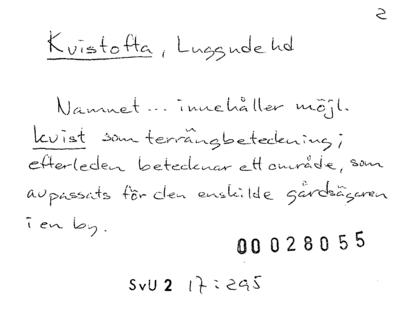 2
Kvistofta, Luggude hd
Namnet ... innehåller möjl.
kvist som terrängbeteckning;
efterleden betecknar ett område, som
avpassats för den enskilde gårdsägaren
i en by.
00028055
SvU 2 17:295